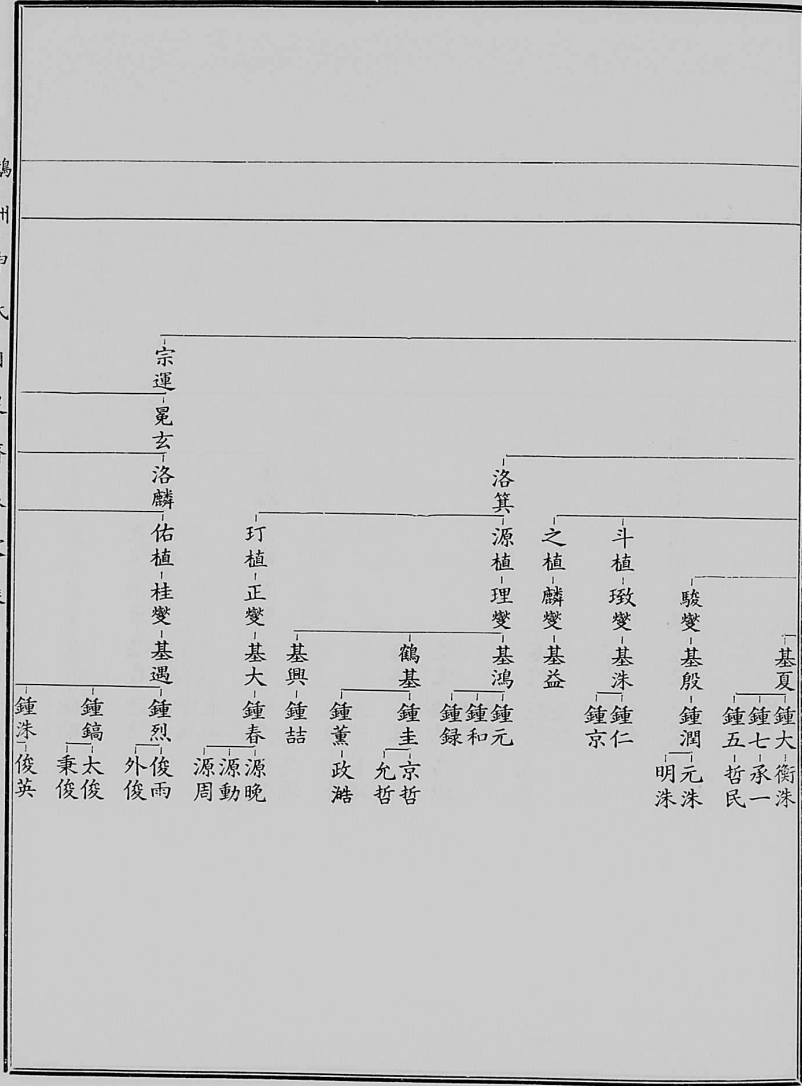 基夏 鍾大 衡洙
鍾七 承一
鍾五 哲民
駿燮 基殷 鍾潤 元洙
明洙
斗植 璬燮 基洙 鍾仁
鍾京
之植 麟燮 基益
洛箕 源植 理燮 基鴻 鍾元
鍾和
鍾録
鶴基 鍾圭 京哲
允哲
鍾薫 政澔
基興 鍾喆
玎植 正燮 基大 鍾春 源晚
源動
源周
宗運 冕玄 洛麟 佑植 桂燮 基遇 鍾烈 俊雨
外俊
鍾鎬 太俊
秉俊
鍾洙 俊英